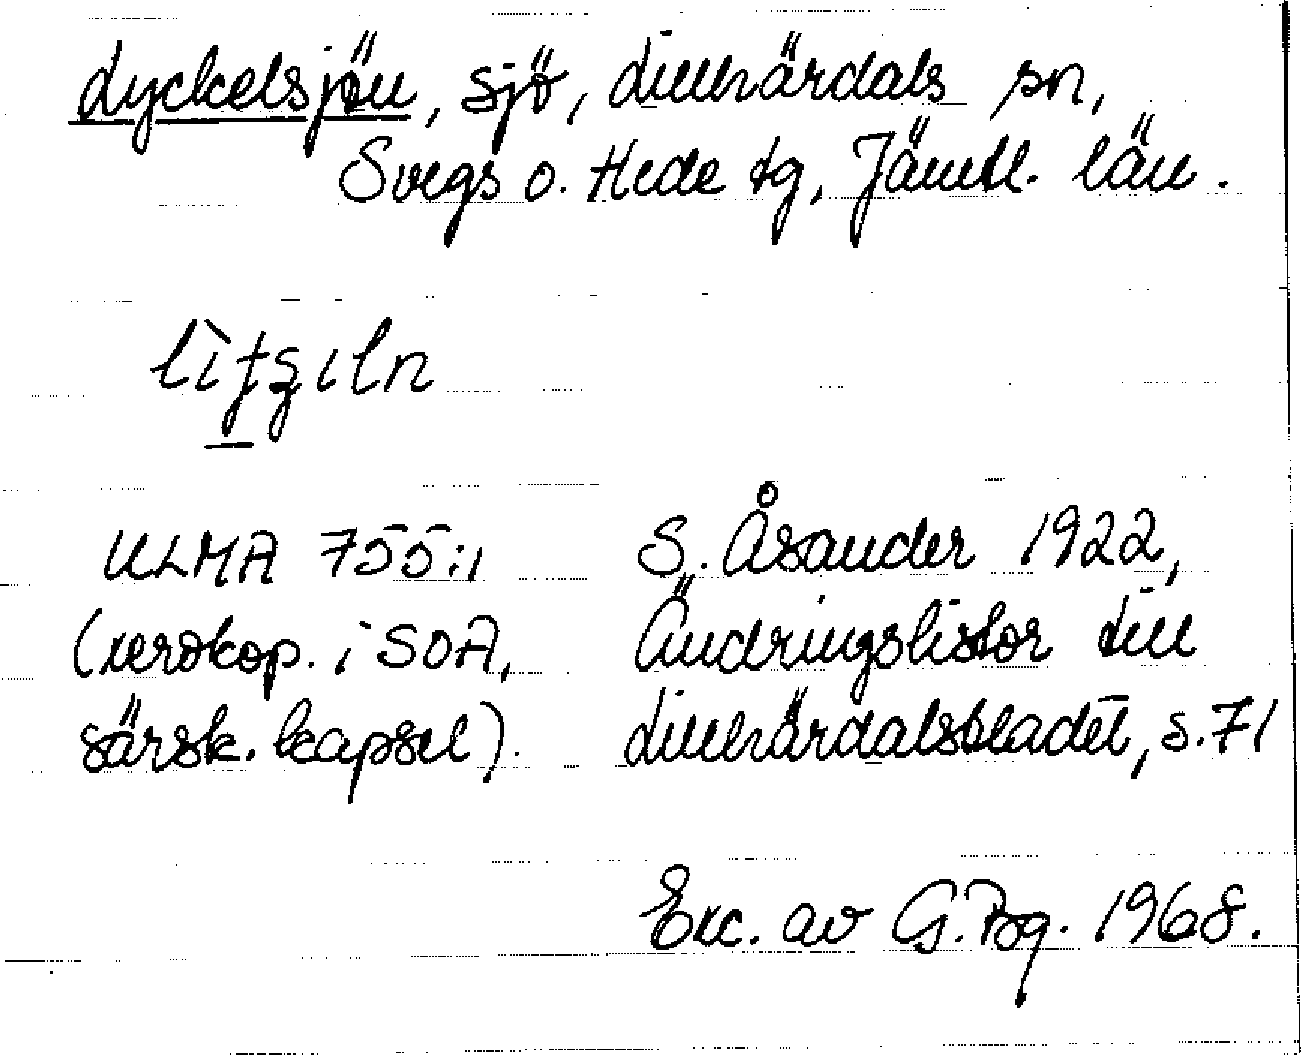 Lyckelsjön, sjö, Lillhärdals sn,
Svegs o. Hede tg, Jämtl. län.
ULMA 755:1 S. Åsander 1922,
(xerokop. i SOA, Ändringslistor till
särsk. kapsel). Lillhärdalsbladet, s. 71
Exc. av G. Bg. 1968.